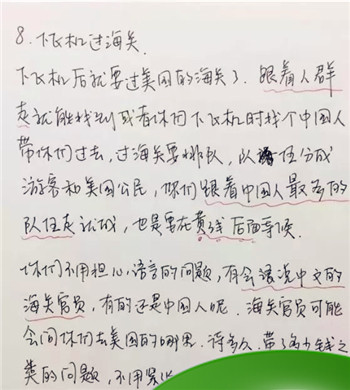 8. 下飞机过海关.
下飞机后就要过美国的海关了. 跟着人群
走就能找到或者你们下飞机时找个中国人
带你们过去, 过海关要排队, 队伍分成
游客和美国公民, 你们跟着中国人最多的
队伍走就成, 也是要在黄线后面等候.
你们不用担心语言的问题, 有会说中文的
海关官员, 有的还是中国人呢. 海关官员可能
会问你们去美国的哪里. 待多久, 带了多少钱之
类的问题, 不用紧